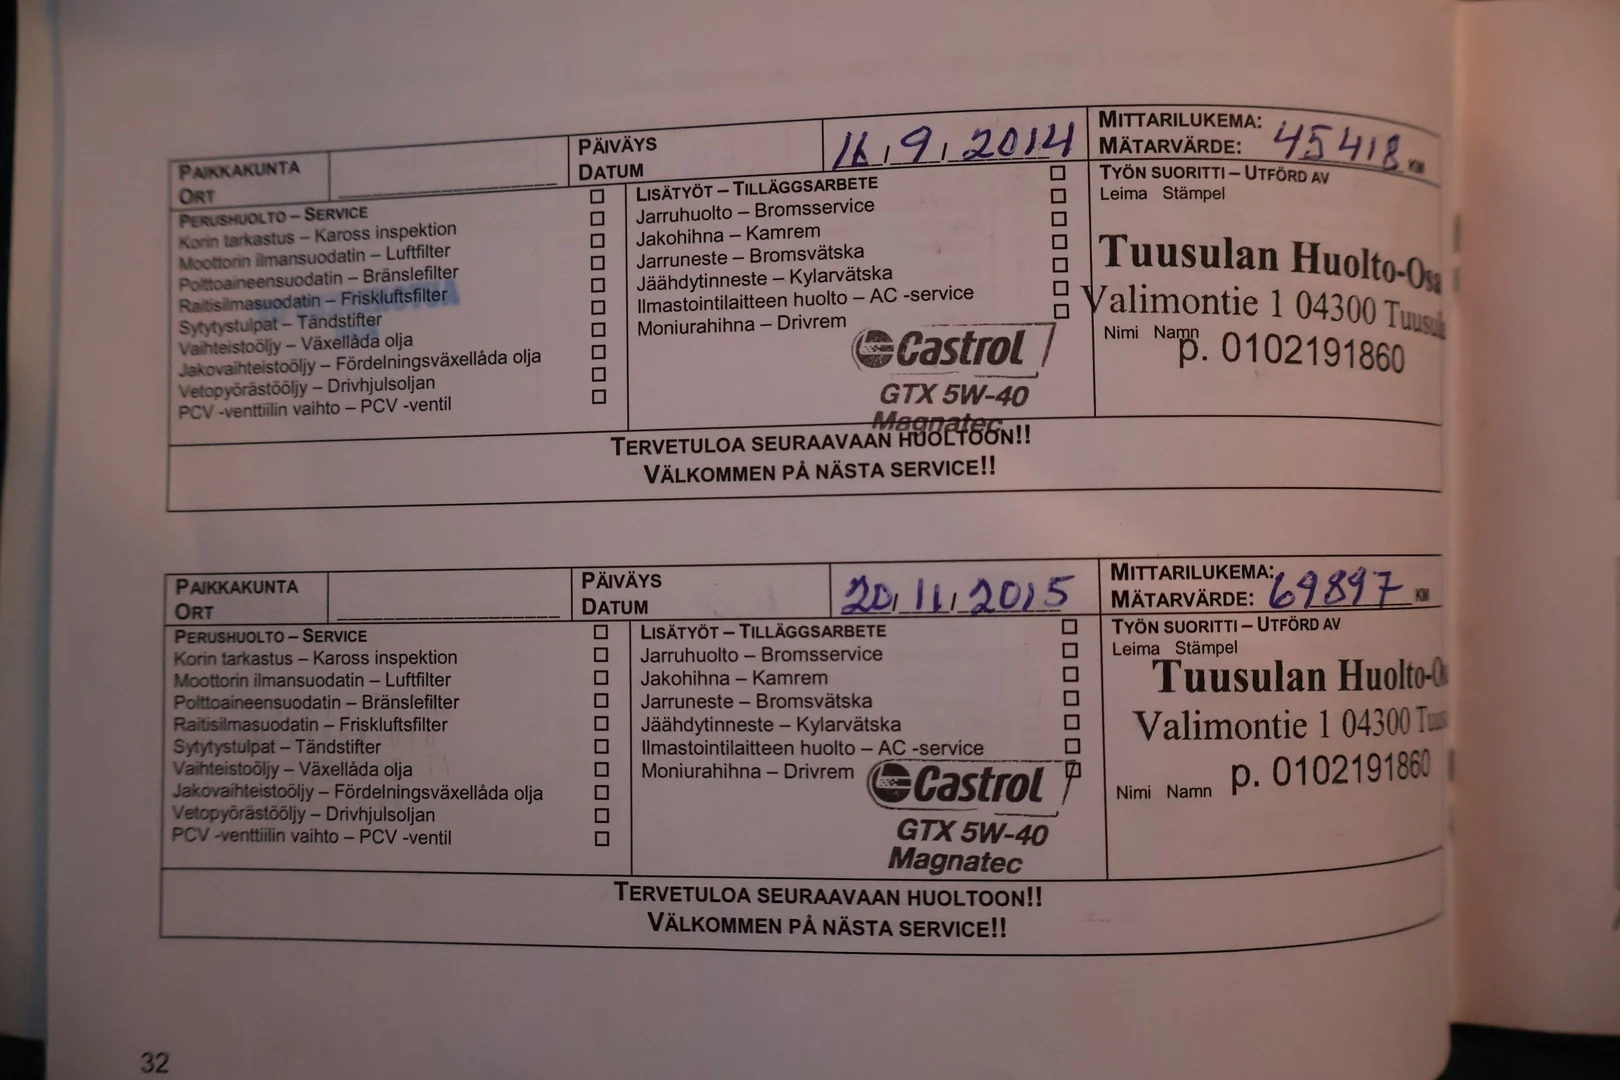 PAIKKAKUNTA
ORT
PÄIVÄYS
DATUM
16.9.2014
MITTARILUKEMA:
MÄTARVÄRDE: 45418 KM
PERUSHUOLTO – SERVICE
Korin tarkastus – Kaross inspektion
Moottorin ilmansuodatin – Luftfilter
Polttoaineensuodatin – Bränslefilter
Raitisilmasuodatin – Friskluftsfilter
Sytytystulpat – Tändstifter
Vaihteistoöljy – Växellåda olja
Jakovaihteistoöljy – Fördelningsväxellåda olja
Vetopyörästööljy – Drivhjulsoljan
PCV -venttiilin vaihto – PCV -ventil
LISÄTYÖT – TILLÄGGSARBETE
Jarruhuolto – Bromsservice
Jakohihna – Kamrem
Jarruneste – Bromsvätska
Jäähdytinneste – Kylarvätska
Ilmastointilaitteen huolto – AC -service
Moniurahihna – Drivrem
Castrol
GTX 5W-40
Magnatec
TYÖN SUORITTI – UTFÖRD AV
Leima Stämpel
Tuusulan Huolto-Osa
Valimontie 1 04300 Tuusula
Nimi Namn
p. 0102191860
TERVETULOA SEURAAVAAN HUOLTOON!!
VÄLKOMMEN PÅ NÄSTA SERVICE!!
PAIKKAKUNTA
ORT
PÄIVÄYS
DATUM
20.11.2015
MITTARILUKEMA:
MÄTARVÄRDE: 69897 KM
PERUSHUOLTO – SERVICE
Korin tarkastus – Kaross inspektion
Moottorin ilmansuodatin – Luftfilter
Polttoaineensuodatin – Bränslefilter
Raitisilmasuodatin – Friskluftsfilter
Sytytystulpat – Tändstifter
Vaihteistoöljy – Växellåda olja
Jakovaihteistoöljy – Fördelningsväxellåda olja
Vetopyörästööljy – Drivhjulsoljan
PCV -venttiilin vaihto – PCV -ventil
LISÄTYÖT – TILLÄGGSARBETE
Jarruhuolto – Bromsservice
Jakohihna – Kamrem
Jarruneste – Bromsvätska
Jäähdytinneste – Kylarvätska
Ilmastointilaitteen huolto – AC -service
Moniurahihna – Drivrem
Castrol
GTX 5W-40
Magnatec
TYÖN SUORITTI – UTFÖRD AV
Leima Stämpel
Tuusulan Huolto-Os
Valimontie 1 04300 Tuus
Nimi Namn p. 0102191860
TERVETULOA SEURAAVAAN HUOLTOON!!
VÄLKOMMEN PÅ NÄSTA SERVICE!!
32